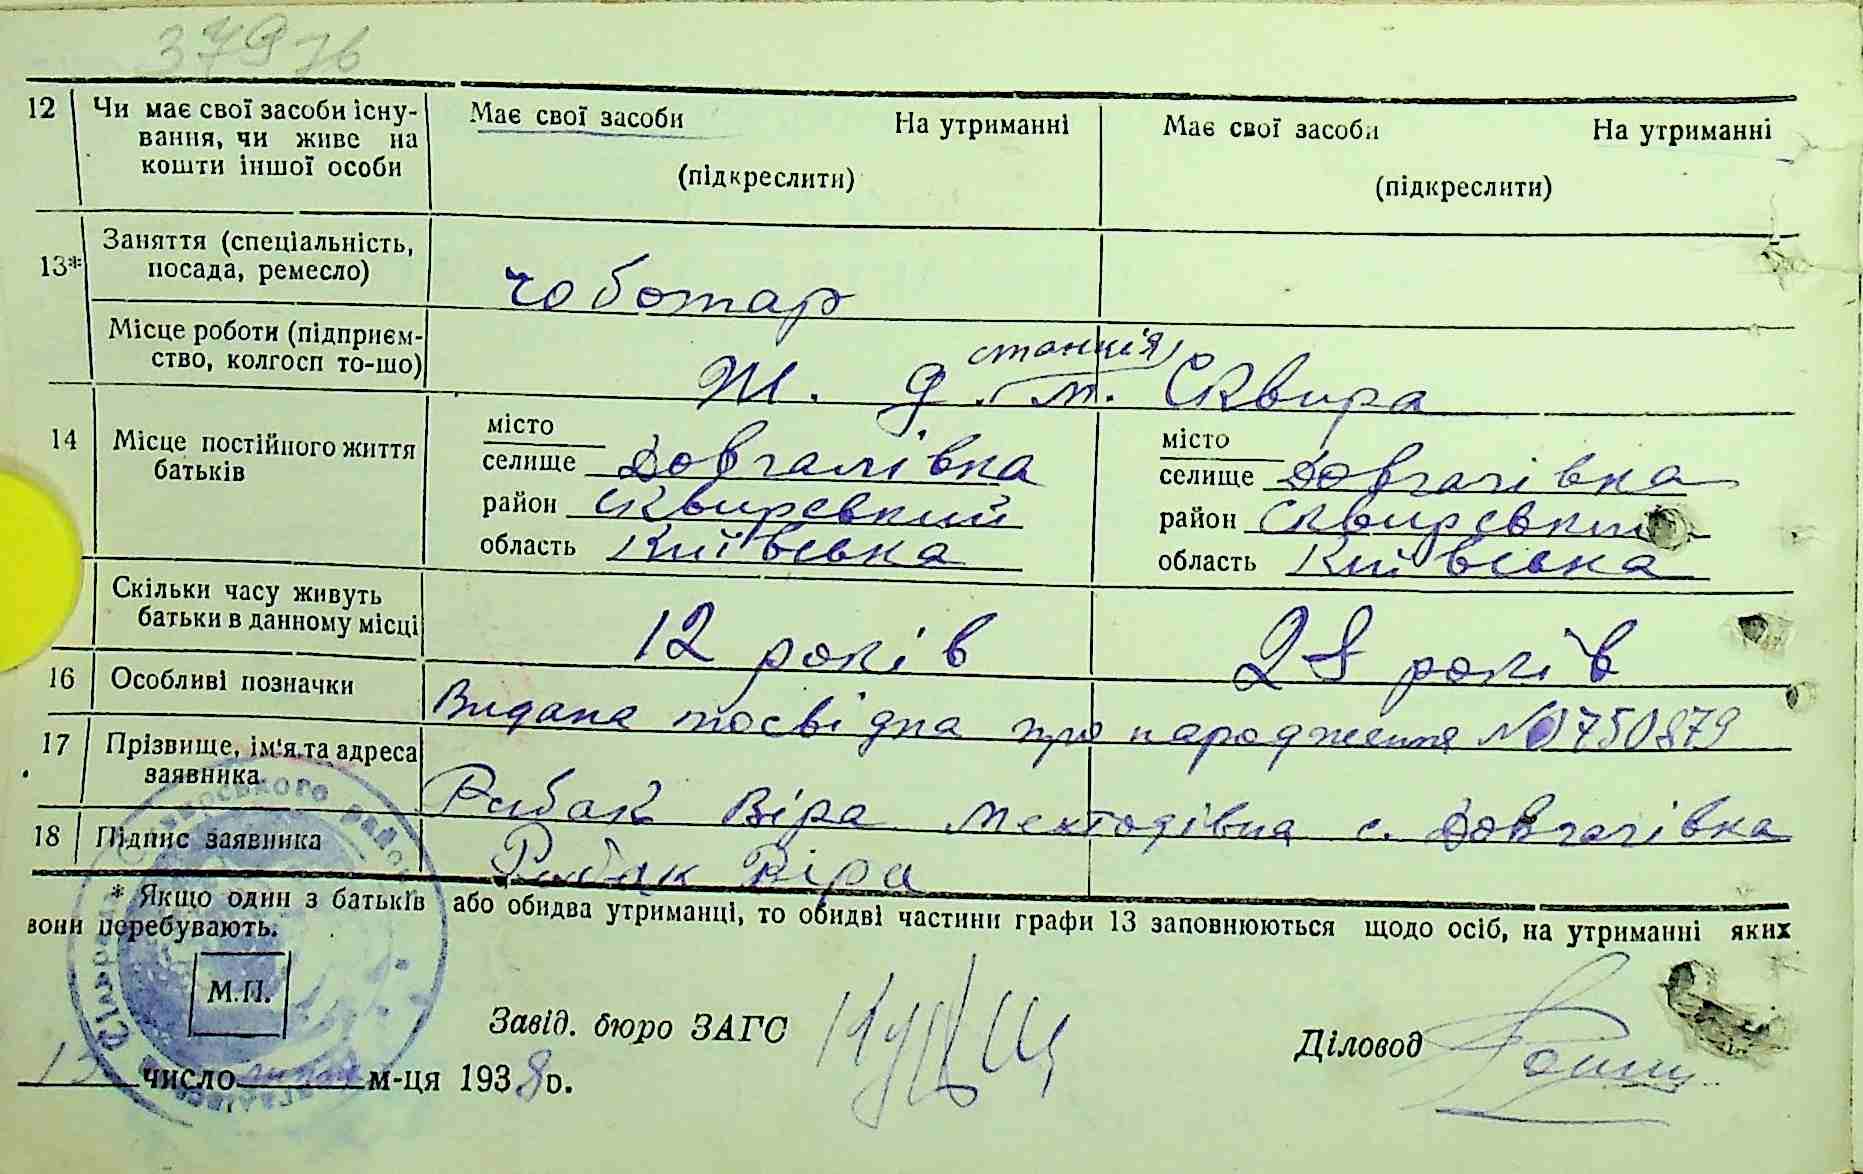 379
12 Чи має свої засоби існу-
вання, чи живе на
кошти іншої особи
Має свої засоби На утриманні
(підкреслити)
Має свої засоби На утриманні
(підкреслити)
13* Заняття (спеціальність,
посада, ремесло)
чоботар
Місце роботи (підприєм-
ство, колгосп то-що)
станція
Ж. д. т. Сквира
14 Місце постійного життя
батьків
місто
селище Довгалівка
район Сквирський
область Київська
місто
селище Довгалівка
район Сквирський
область Київська
Скільки часу живуть
батьки в данному місці
12 років 28 років
16 Особливі позначки
Видана посвідка про народження № 750879
17 Прізвище, ім'я та адреса
заявника
Рибак Віра Мехтодівна с. Довгалівка
18 Підпис заявника
Рибак Віра
* Якщо один з батьків або обидва утриманці, то обидві частини графи 13 заповнюються щодо осіб, на утриманні яких
вони перебувають.
М.П.
Завід. бюро ЗАГС
Діловод
число м-ця 1938 о.